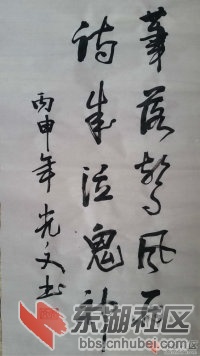 筆落驚風雨
詩成泣鬼神
丙申年 光文书
东湖社区
bbs.cnhubei.com